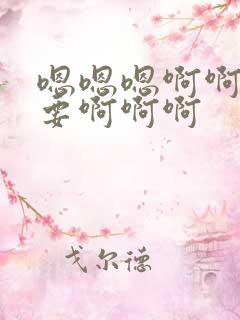 嗯嗯嗯啊啊
要啊啊啊
戈尔德